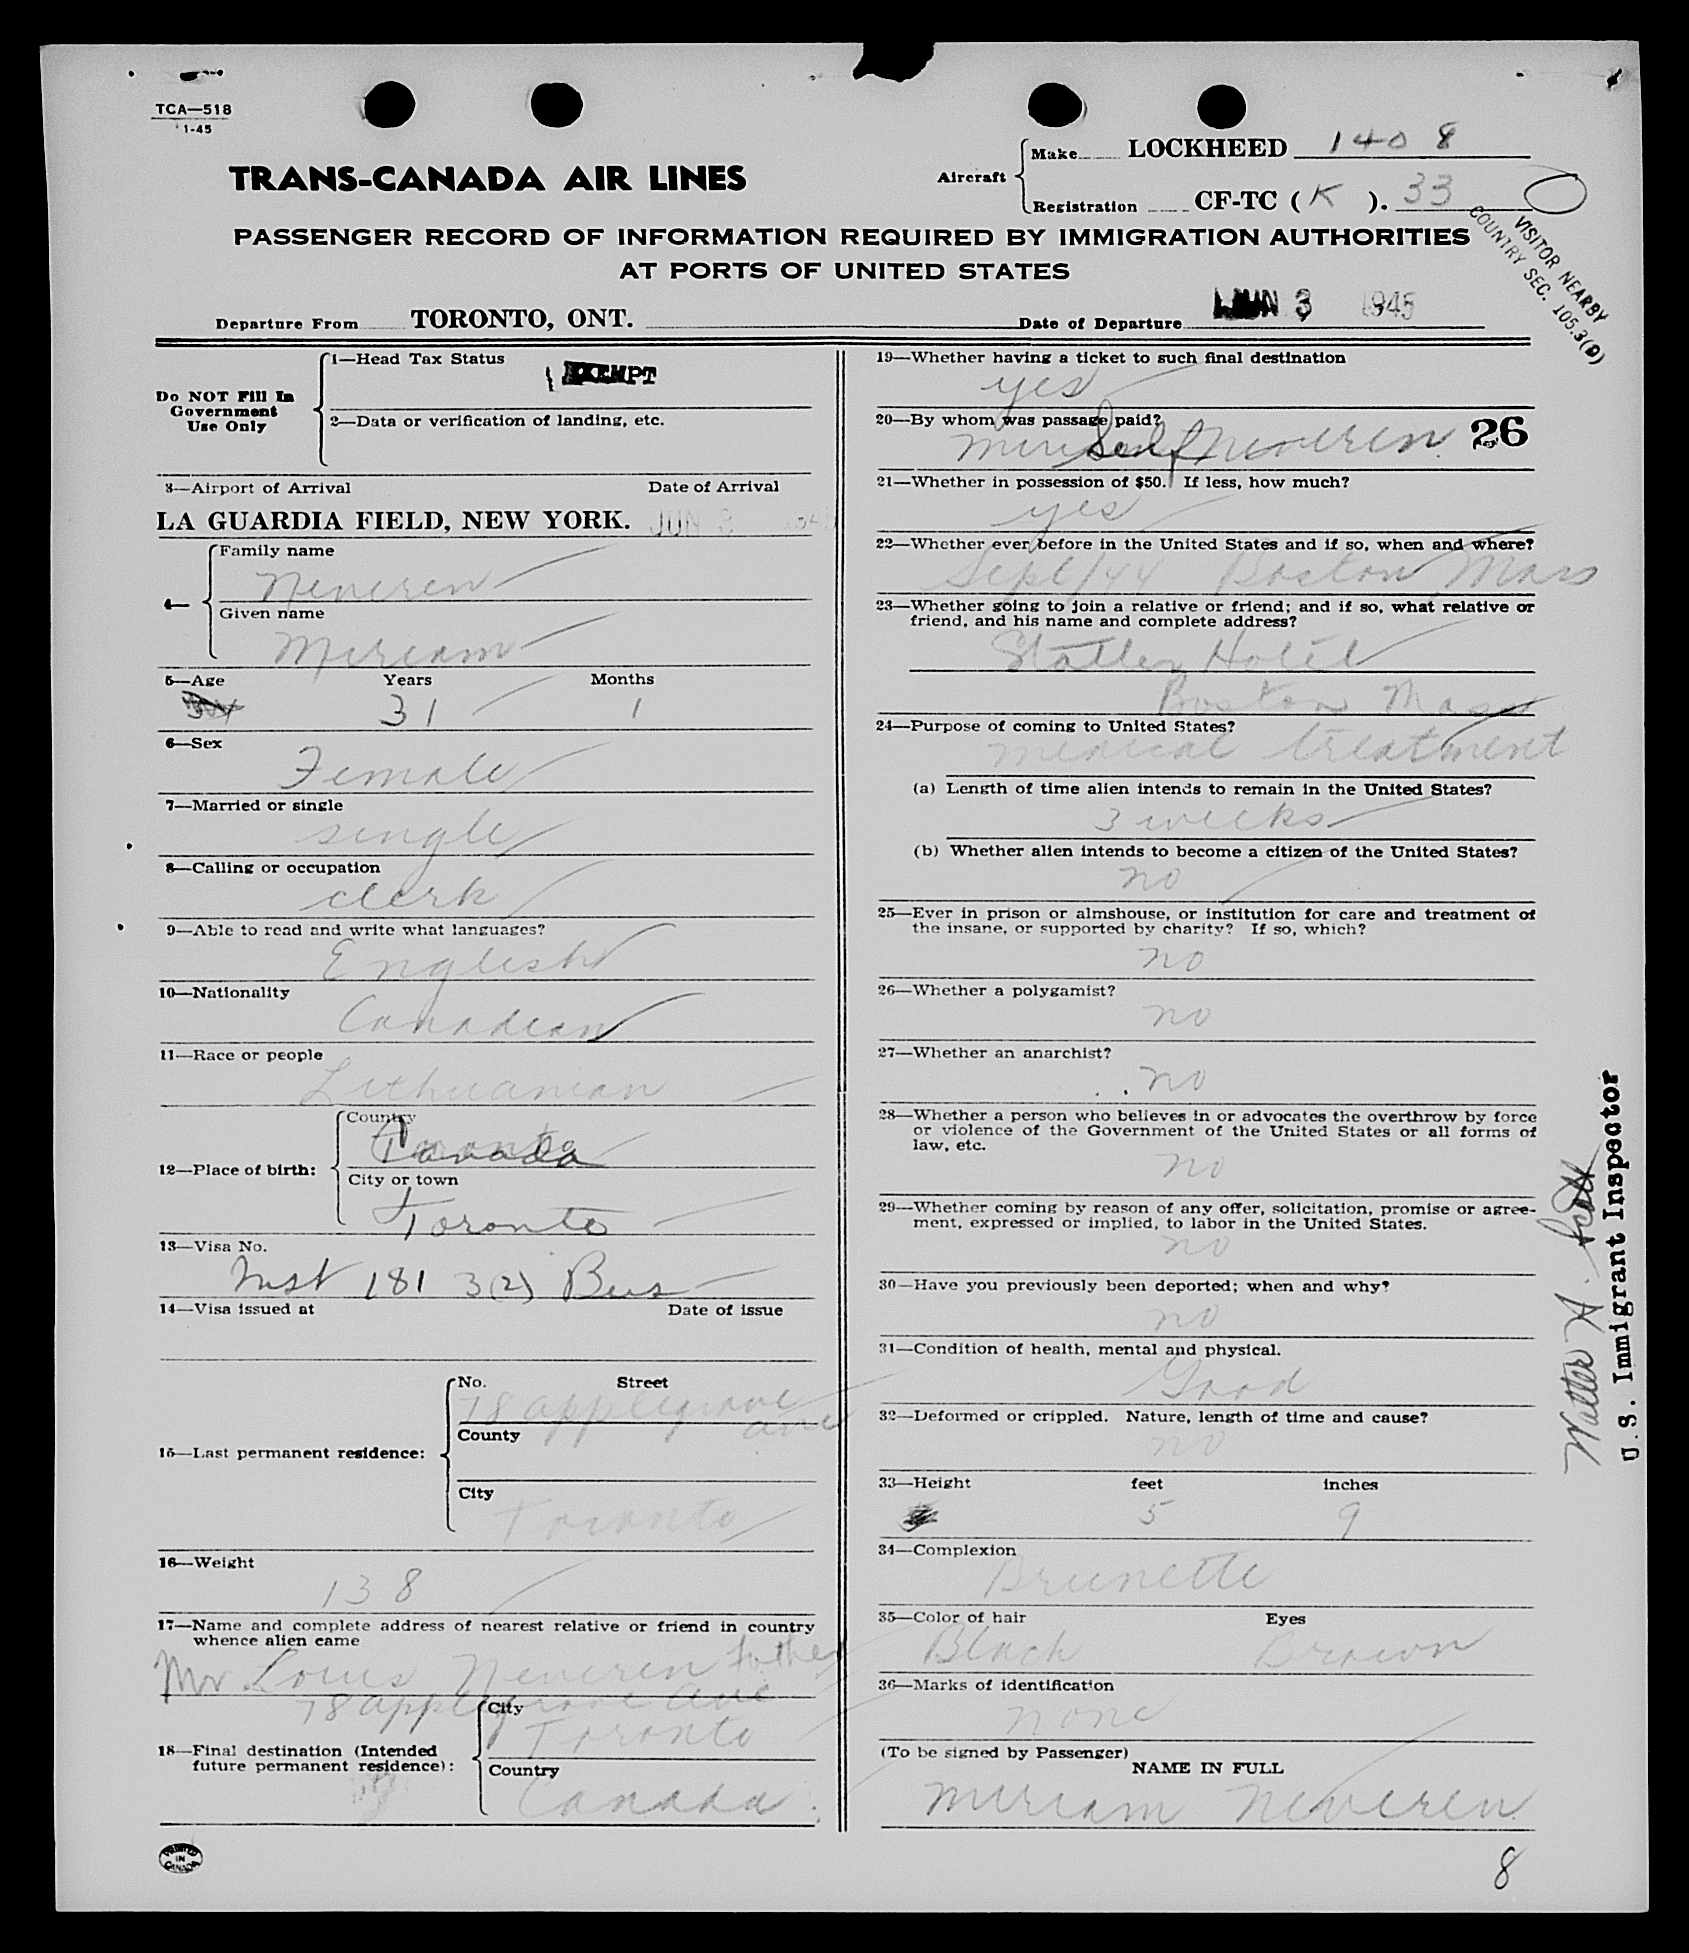 TCA—518
1-45
TRANS-CANADA AIR LINES
Aircraft
Make LOCKHEED 1408
Registration CF-TC ( K ). 33
PASSENGER RECORD OF INFORMATION REQUIRED BY IMMIGRATION AUTHORITIES
AT PORTS OF UNITED STATES
VISITOR NEARBY
COUNTRY SEC. 105.3(D)
Departure From TORONTO, ONT. Date of Departure JUN 3 1945
Do NOT Fill In
Government
Use Only
1—Head Tax Status
EXEMPT
2—Data or verification of landing, etc.
3—Airport of Arrival Date of Arrival
LA GUARDIA FIELD, NEW YORK. JUN 3
4—
Family name
Neveren
Given name
Miriam
5—Age Years Months
31 1
6—Sex
Female
7—Married or single
single
8—Calling or occupation
clerk
9—Able to read and write what languages?
English
10—Nationality
Canadian
11—Race or people
Lithuanian
12—Place of birth:
Country
Canada
City or town
Toronto
13—Visa No.
181 3(2) Bus
14—Visa issued at Date of issue
15—Last permanent residence:
No. Street
78 applegrove
ave
County
City
Toronto
16—Weight
138
17—Name and complete address of nearest relative or friend in country
whence alien came
Mr Louis Neveren father
78 applegrove ave
18—Final destination (Intended
future permanent residence):
City
Toronto
Country
Canada
PRINTED
IN
CANADA
19—Whether having a ticket to such final destination
yes
20—By whom was passage paid?
Self Neveren
26
21—Whether in possession of $50. If less, how much?
yes
22—Whether ever before in the United States and if so, when and where?
Sept/44 Boston Mass
23—Whether going to join a relative or friend; and if so, what relative or
friend, and his name and complete address?
Statler Hotel
Boston Mass
24—Purpose of coming to United States?
medical treatment
(a) Length of time alien intends to remain in the United States?
3 weeks
(b) Whether alien intends to become a citizen of the United States?
no
25—Ever in prison or almshouse, or institution for care and treatment of
the insane, or supported by charity? If so, which?
no
26—Whether a polygamist?
no
27—Whether an anarchist?
no
28—Whether a person who believes in or advocates the overthrow by force
or violence of the Government of the United States or all forms of
law, etc.
no
29—Whether coming by reason of any offer, solicitation, promise or agree-
ment, expressed or implied, to labor in the United States.
no
30—Have you previously been deported; when and why?
no
31—Condition of health, mental and physical.
Good
32—Deformed or crippled. Nature, length of time and cause?
no
33—Height feet inches
5 9
34—Complexion
Brunette
35—Color of hair Eyes
Black Brown
36—Marks of identification
none
(To be signed by Passenger)
NAME IN FULL
Miriam Neveren
8
Walter A. Scott
U.S. Immigrant Inspector